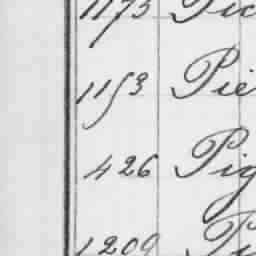 1173 Pic
1153 Pie
426 Pig
1209 Pi